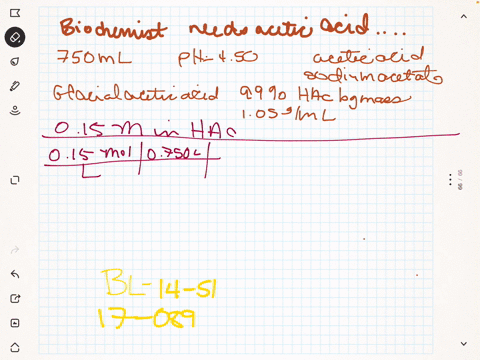 Biochemist needs acetic acid....
750mL pH=4.50 acetic acid
sodium acetate
Glacial acetic acid 99% HAc by mass
1.05 g/mL
0.15 M in HAc
0.15 mol 0.750L
L
BL-14-51
17-089